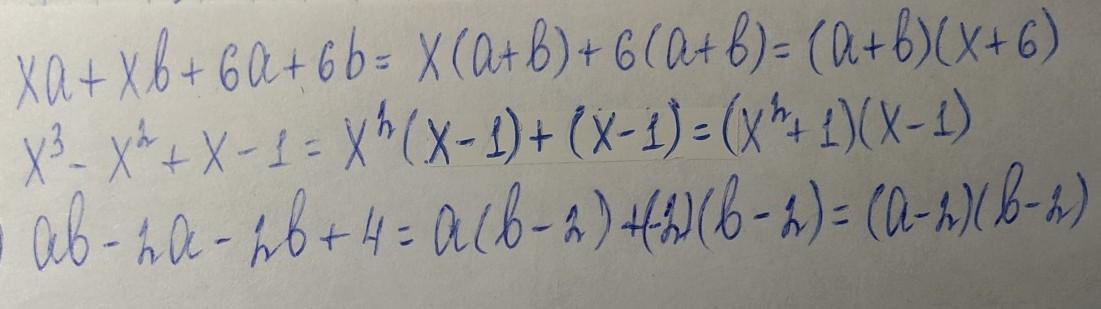 xa + xb + 6a + 6b = x(a+b) + 6(a+b) = (a+b)(x+6)
x³ - x² + x - 1 = x²(x-1) + (x-1) = (x²+1)(x-1)
) ab - 2a - 2b + 4 = a(b-2) + (-2)(b-2) = (a-2)(b-2)